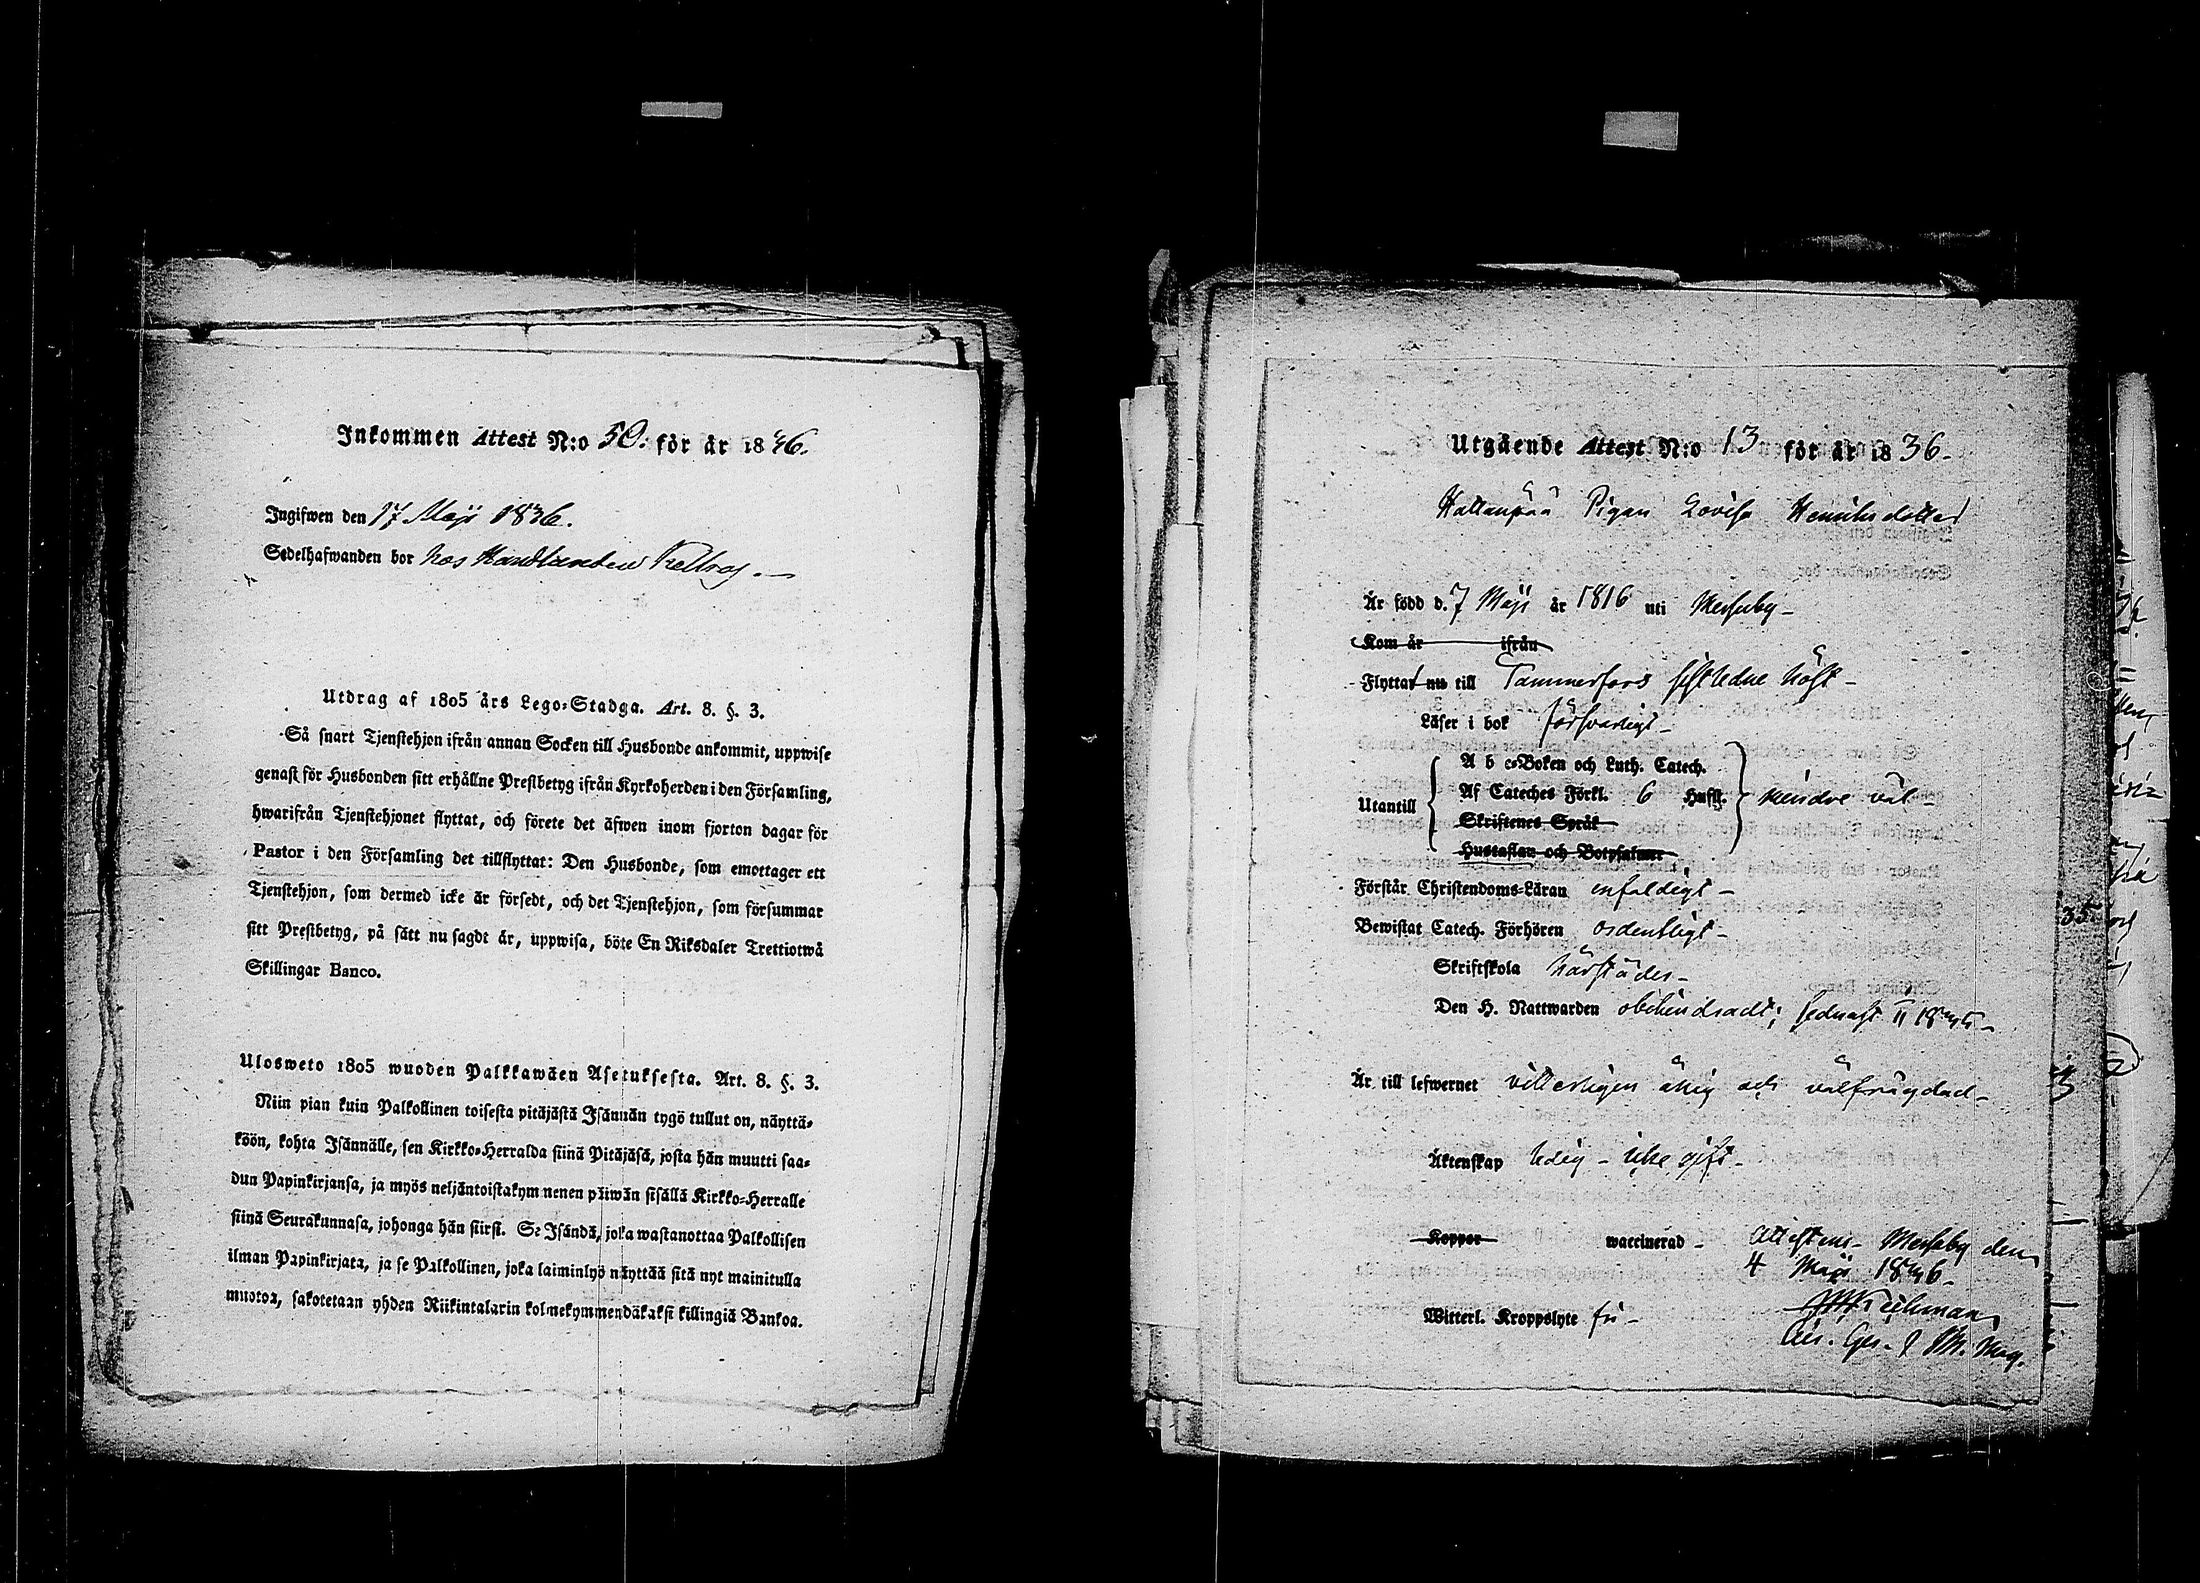 Inkommen Attest N:o 50. för år 1836.
Ingifwen den 17 Maji 1836.
Sedelhafwanden bor hos Handlanden
Utdrag af 1805 års Lego-Stadga. Art. 8. §. 3.
Så snart Tjenstehjon ifrån annan Socken till Husbonde ankommit, uppwise
genast för Husbonden sitt erhållne Prestbetyg ifrån Kyrkoherden i den Församling,
hwarifrån Tjenstehjonet flyttat, och förete det äfwen inom fjorton dagar för
Pastor i den Församling det tillflyttat: Den Husbonde, som emottager ett
Tjenstehjon, som dermed icke är försedt, och det Tjenstehjon, som försummar
sitt Prestbetyg, på sätt nu sagdt är, uppwisa, böte En Riksdaler Trettiotwå
Skillingar Banco.
Ulosweto 1805 wuoden Palkkawäen Asetuksesta. Art. 8. §. 3.
Niin pian kuin Palkollinen toisesta pitäjästä Isännän tygö tullut on, näyttä-
köön, kohta Isännälle, sen Kirkko-Herralda siinä Pitäjäsä, josta hän muutti saa-
dun Papinkirjansa, ja myös neljäntoistakymmenen päiwän sisällä Kirkko-Herralle
siinä Seurakunnasa, johonga hän siirsi. Se Isändä, joka wastanottaa Palkollisen
ilman Papinkirjata, ja se Palkollinen, joka laiminlyö näyttää sitä nyt mainitulla
muotoa, sakotetaan yhden Riikintalarin kolmekymmendäkaksi killingiä Bankoa.
Utgående Attest N:o 13 för år 1836.
Pigan Lovisa Henriksdotter
Är född d. 7 Maji år 1816 uti Messuby
Kom år ifrån
Flyttar nu till Tammerfors sistledne höst
Läser i bok försvarligt
A b c-Boken och Luth. Catech.
Utantill Af Cateches Förkl. 6 Hufst. mindre väl
Skriftenes Språk
Hustaflan och Botpsalmer
Förstår Christendoms-Läran enfaldigt
Bewistat Catech. Förhören ordentligt
Skriftskola härstädes
Den H. Nattwarden obehindradt; sednast 1835
Är till lefwernet vitterligen ärlig och välfrägdad
Äktenskap ledig - icke gift
Koppor waccinerad - Attesteras Messuby den
4 Maji 1836
Witterl. Kroppslyte fri